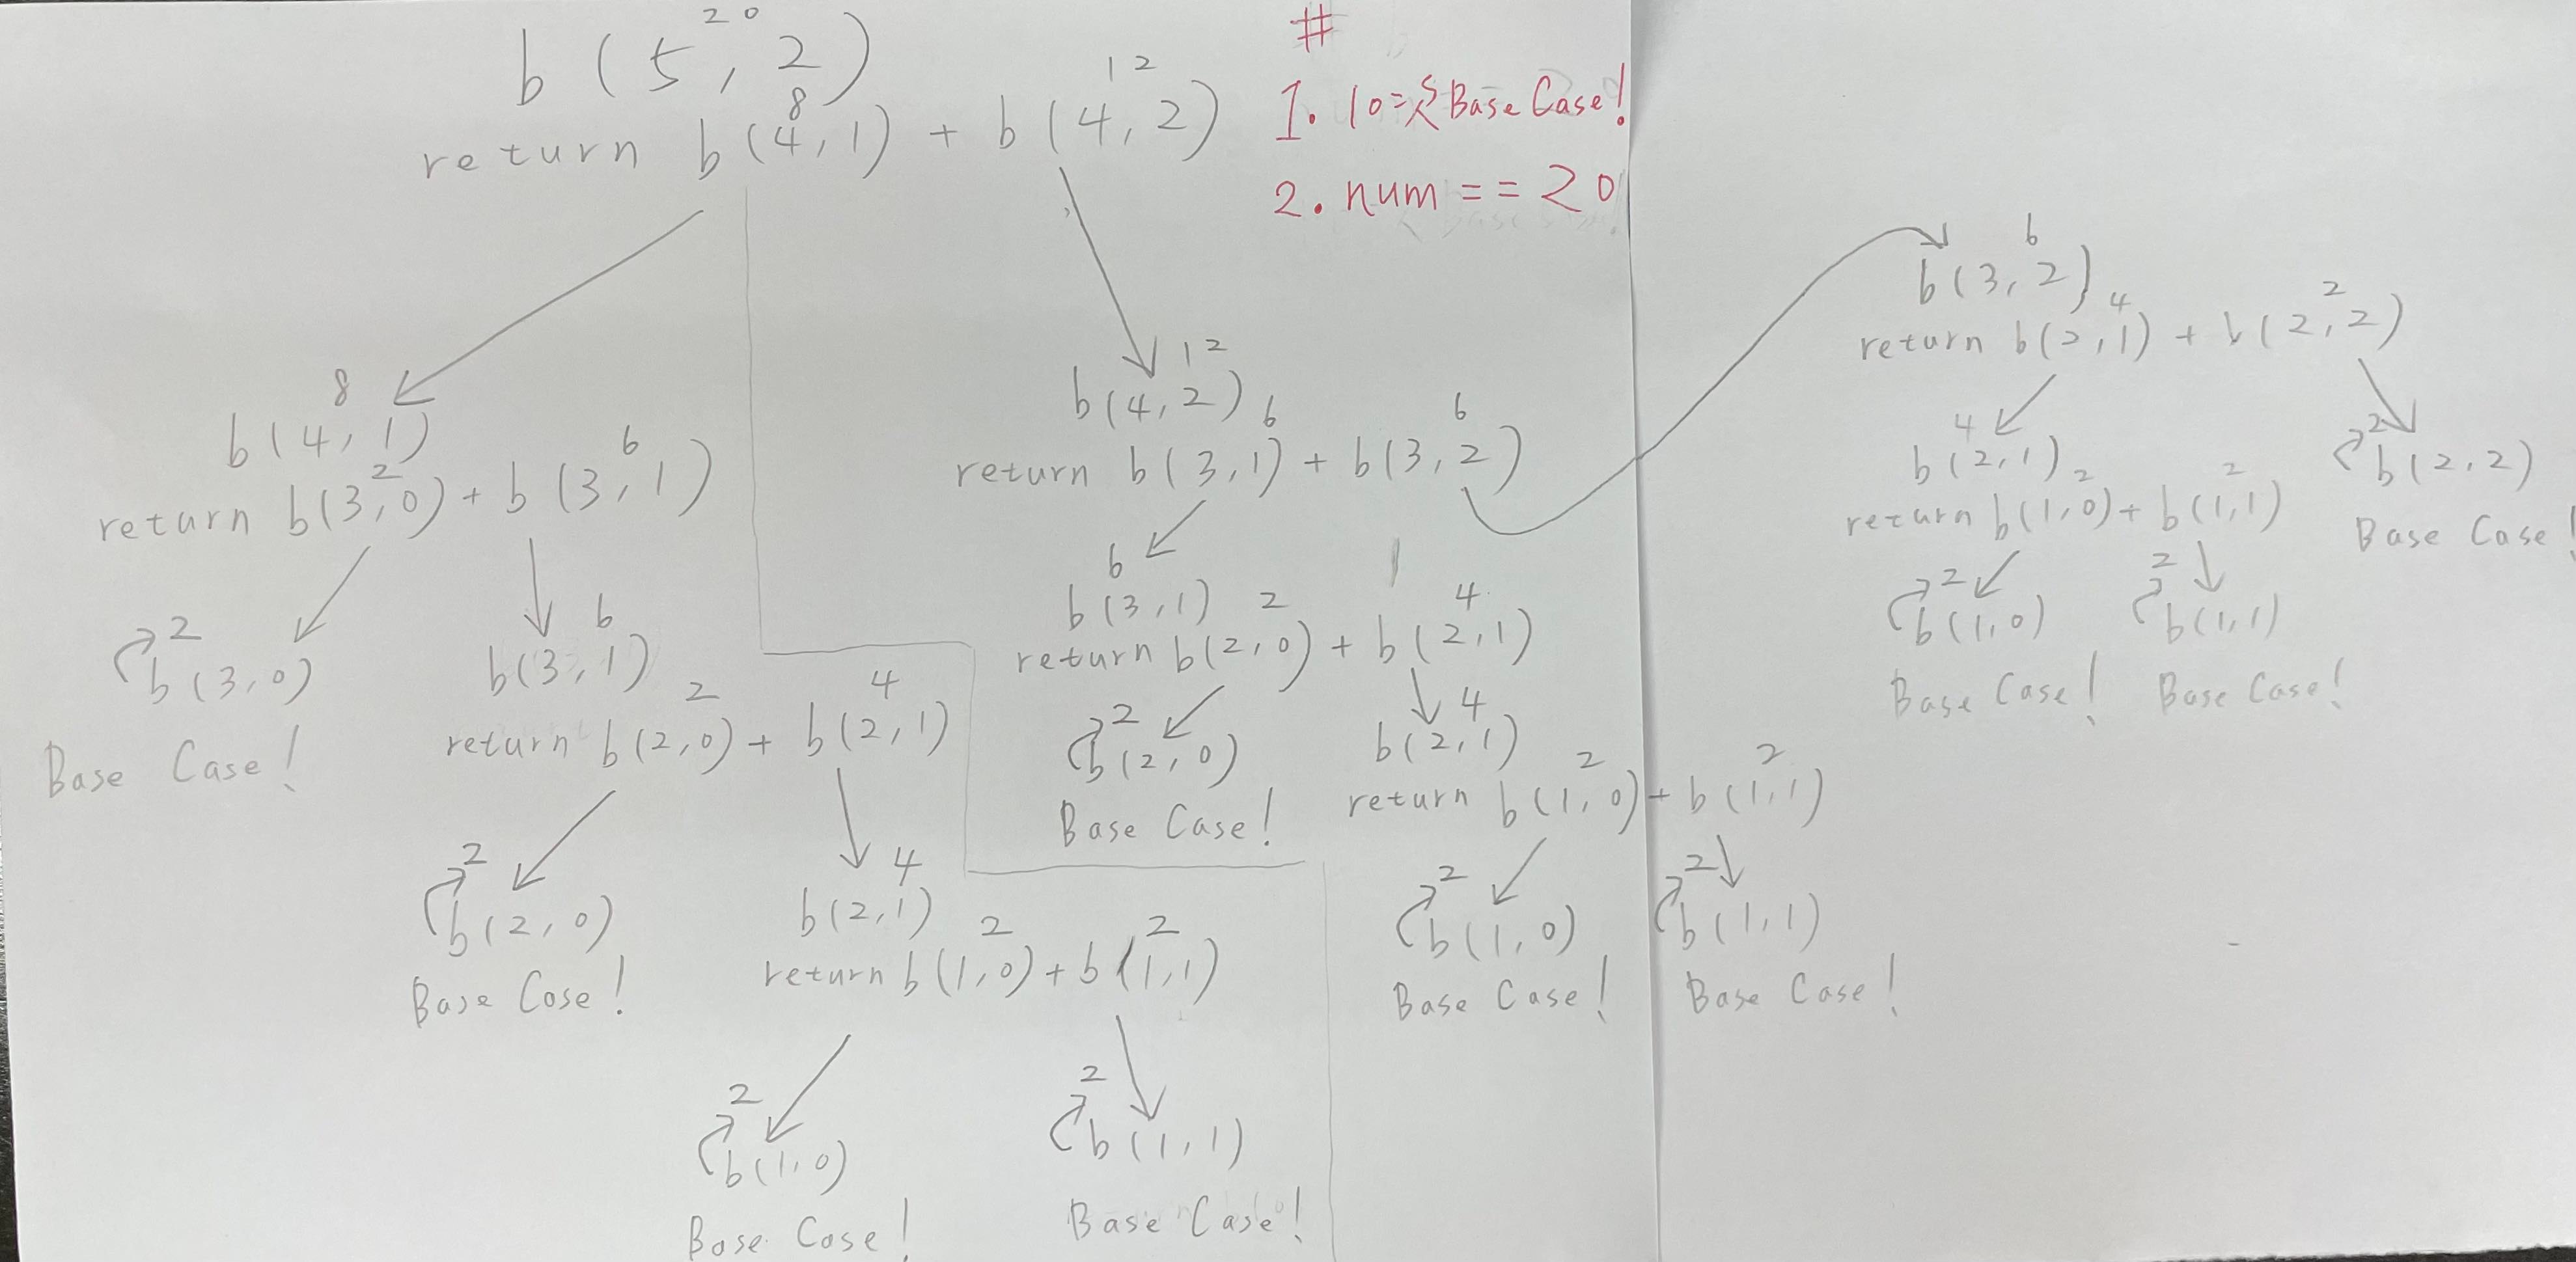 20
b(5,2)
8
12
return b(4,1) + b(4,2)
#
1. 10次 Base Case!
2. num == 20
8
b(4,1)
2
6
return b(3,0) + b(3,1)
2
b(3,0)
Base Case!
6
b(3,1)
2
4
return b(2,0) + b(2,1)
2
b(2,0)
Base Case!
4
b(2,1)
2
2
return b(1,0) + b(1,1)
2
b(1,0)
Base Case!
2
b(1,1)
Base Case!
12
b(4,2)
6
6
return b(3,1) + b(3,2)
6
b(3,1)
2
4
return b(2,0) + b(2,1)
2
b(2,0)
Base Case!
4
b(2,1)
2
2
return b(1,0) + b(1,1)
2
b(1,0)
Base Case!
2
b(1,1)
Base Case!
6
b(3,2)
4
2
return b(2,1) + b(2,2)
4
b(2,1)
2
2
return b(1,0) + b(1,1)
2
b(1,0)
Base Case!
2
b(1,1)
Base Case!
2
b(2,2)
Base Case!